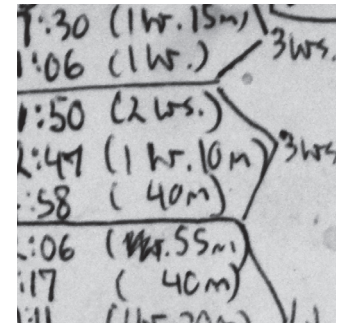 :30 (1hr.15m)
:06 (1hr.) 3hrs.
:50 (2hrs.)
:47 (1hr.10m) 3hrs
:58 ( 40m)
:06 ( hr.55m)
:17 ( 40m)